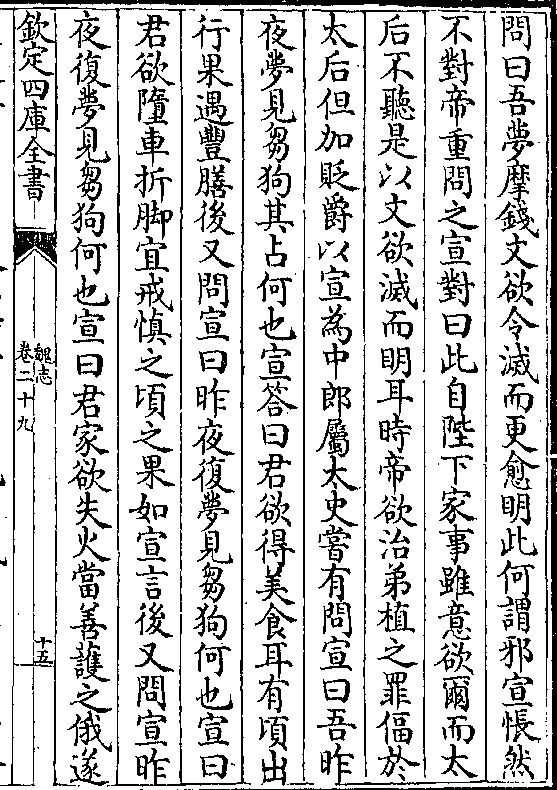 問曰吾夢摩錢文欲令滅而更愈明此何謂邪宣悵然
不對帝重問之宣對曰此自陛下家事雖意欲爾而太
后不聽是以文欲滅而明耳時帝欲治弟植之罪偪於
太后但加貶爵以宣為中郎屬太史嘗有問宣曰吾昨
夜夢見芻狗其占何也宣答曰君欲得美食耳有頃出
行果遇豐膳後又問宣曰昨夜復夢見芻狗何也宣曰
君欲墮車折脚宜戒慎之頃之果如宣言後又問宣昨
夜復夢見芻狗何也宣曰君家欲失火當善護之俄遂
欽定四庫全書
魏志
卷二十九
十五